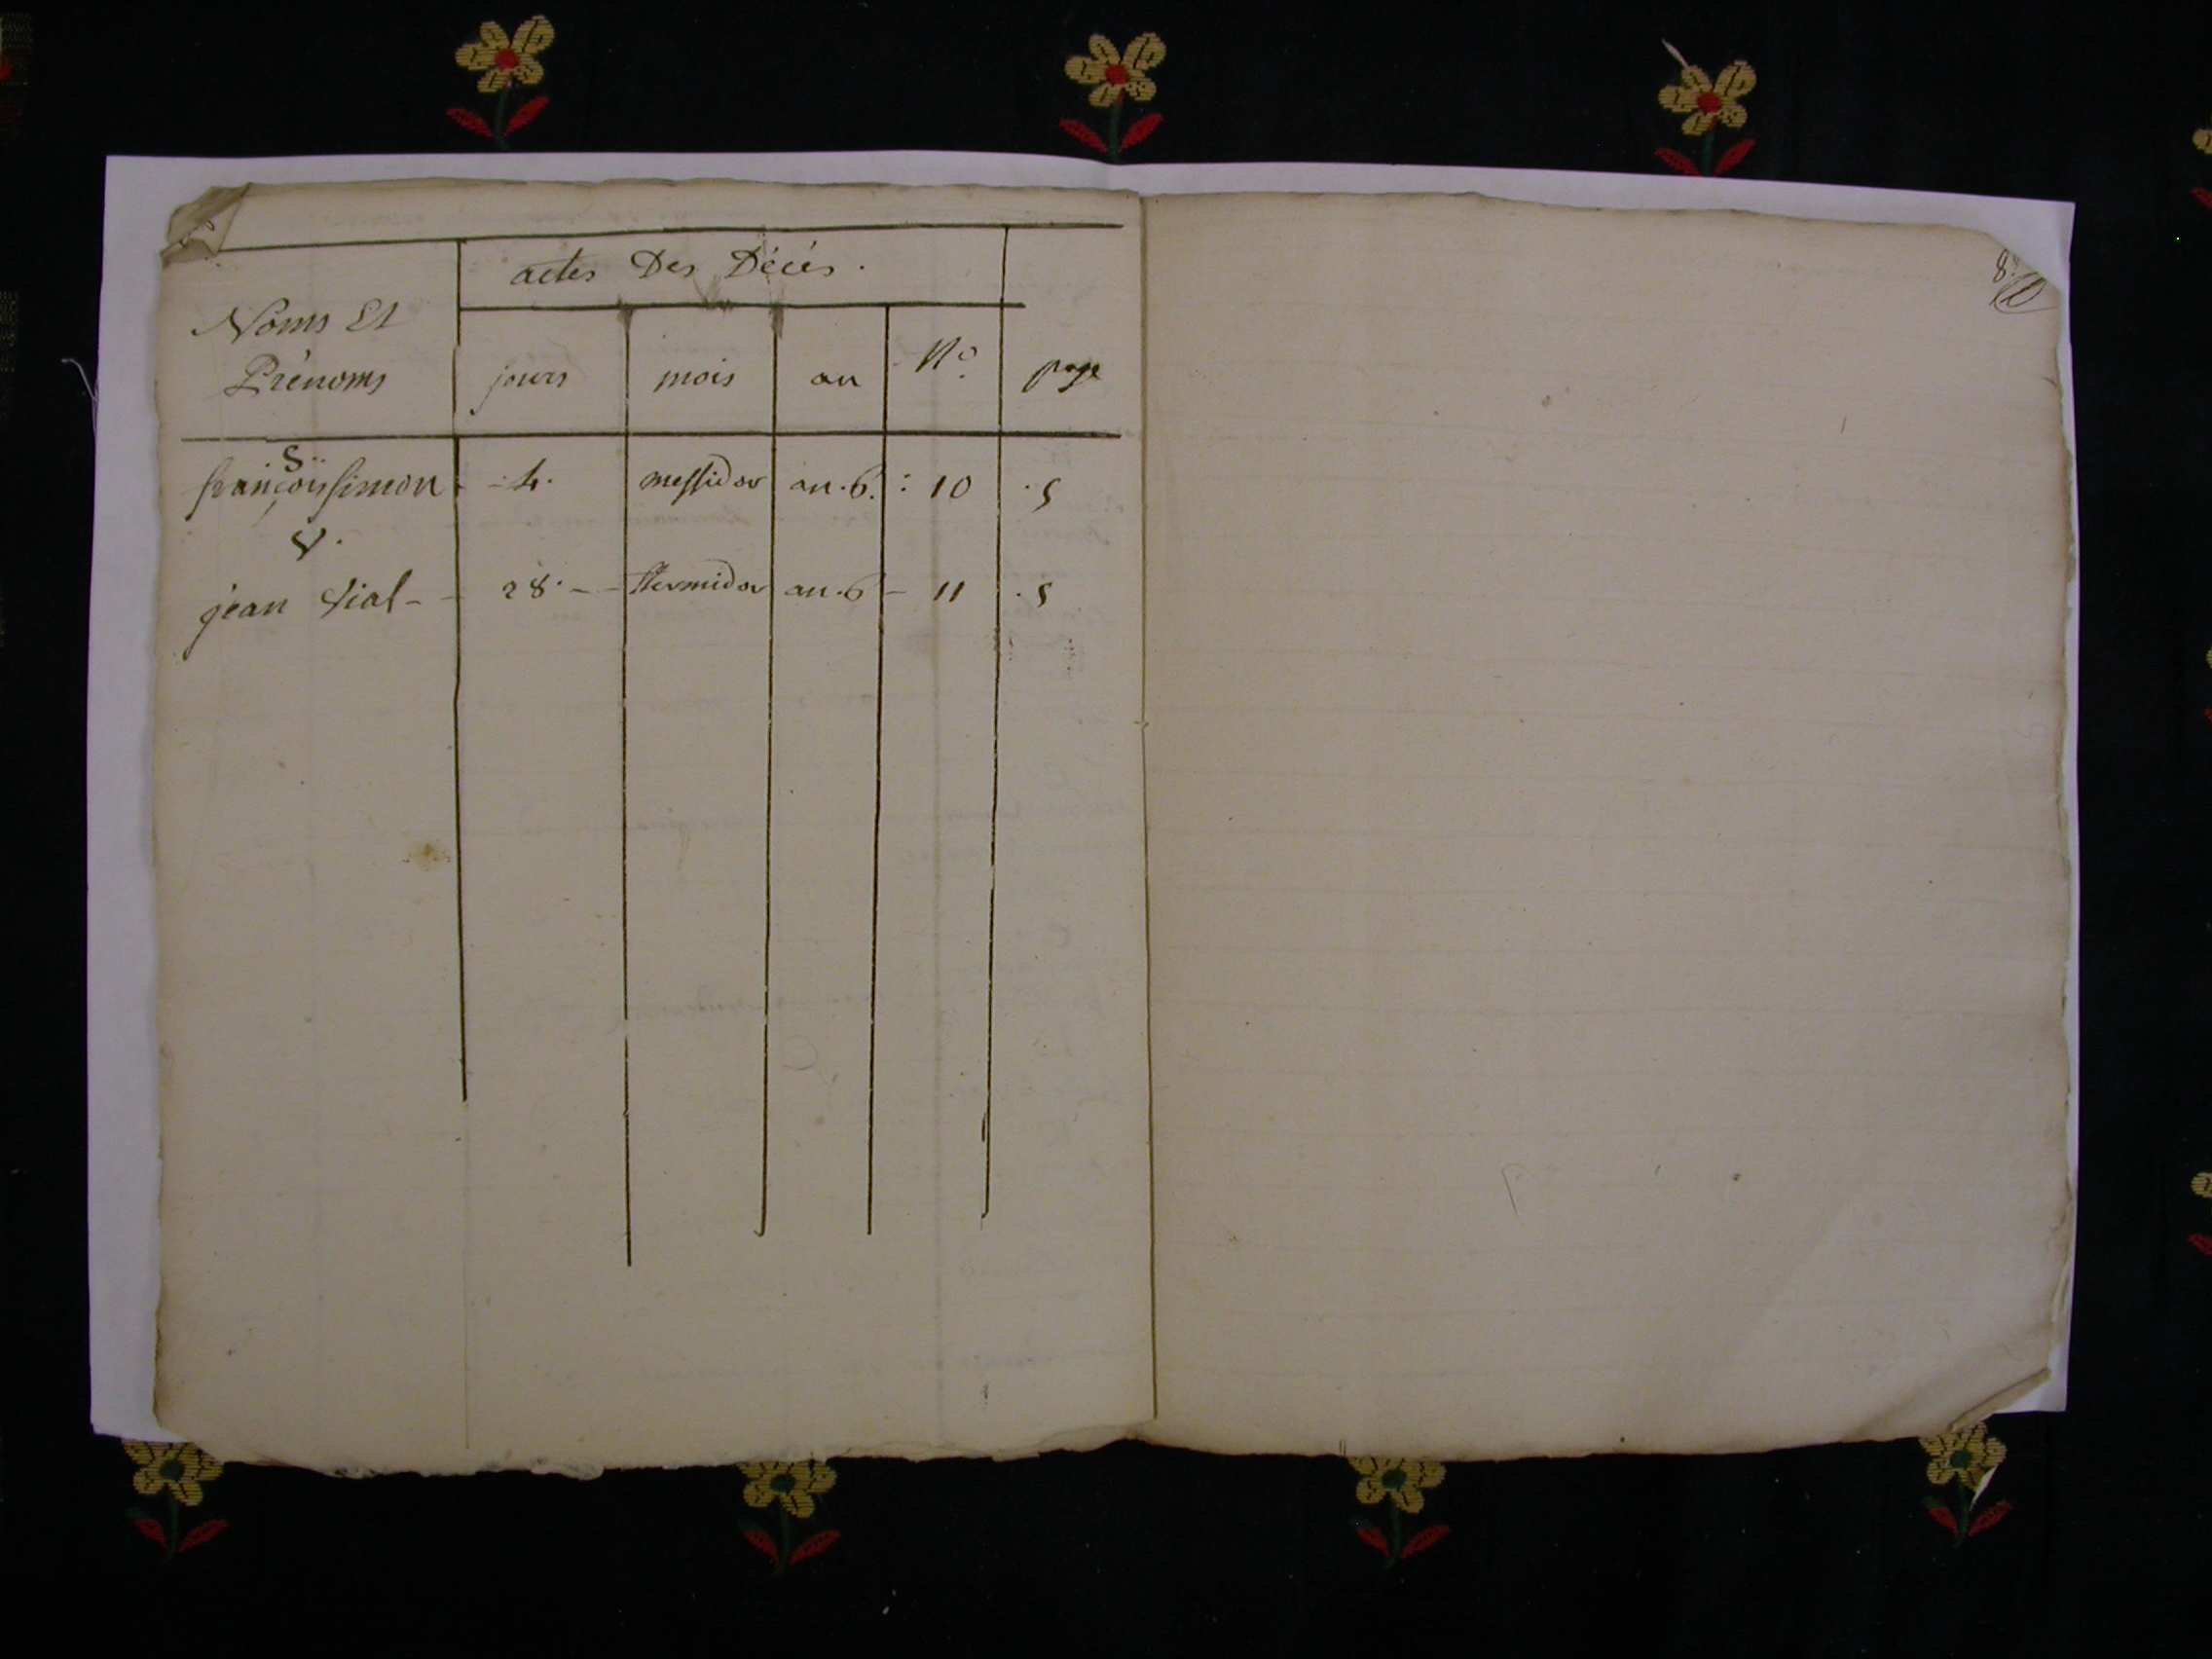 actes Des Décés.
Noms Et
Prénoms
jours mois an N° page
S..
françois simon - 4. messidor an.6. : 10 .5
V.
jean Vial - - 28. - - thermidor an.6 - 11 .5
8